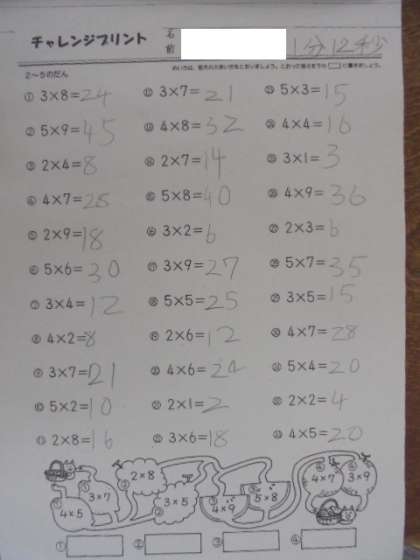 チャレンジプリント 名前 1分12秒
2〜5のだん
① 3×8=24
② 5×9=45
③ 2×4=8
④ 4×7=28
⑤ 2×9=18
⑥ 5×6=30
⑦ 3×4=12
⑧ 4×2=8
⑨ 3×7=21
⑩ 5×2=10
⑪ 2×8=16
⑫ 3×7=21
⑬ 4×8=32
⑭ 2×7=14
⑮ 5×8=40
⑯ 3×2=6
⑰ 3×9=27
⑱ 5×5=25
⑲ 2×6=12
⑳ 4×6=24
㉑ 2×1=2
㉒ 3×6=18
㉓ 5×3=15
㉔ 4×4=16
㉕ 3×1=3
㉖ 4×9=36
㉗ 2×3=6
㉘ 5×7=35
㉙ 3×5=15
㉚ 4×7=28
㉛ 5×4=20
㉜ 2×2=4
㉝ 4×5=20
4×5
3×7
2×8
3×5
4×9
5×8
4×7
3×9
① ② ③ ④